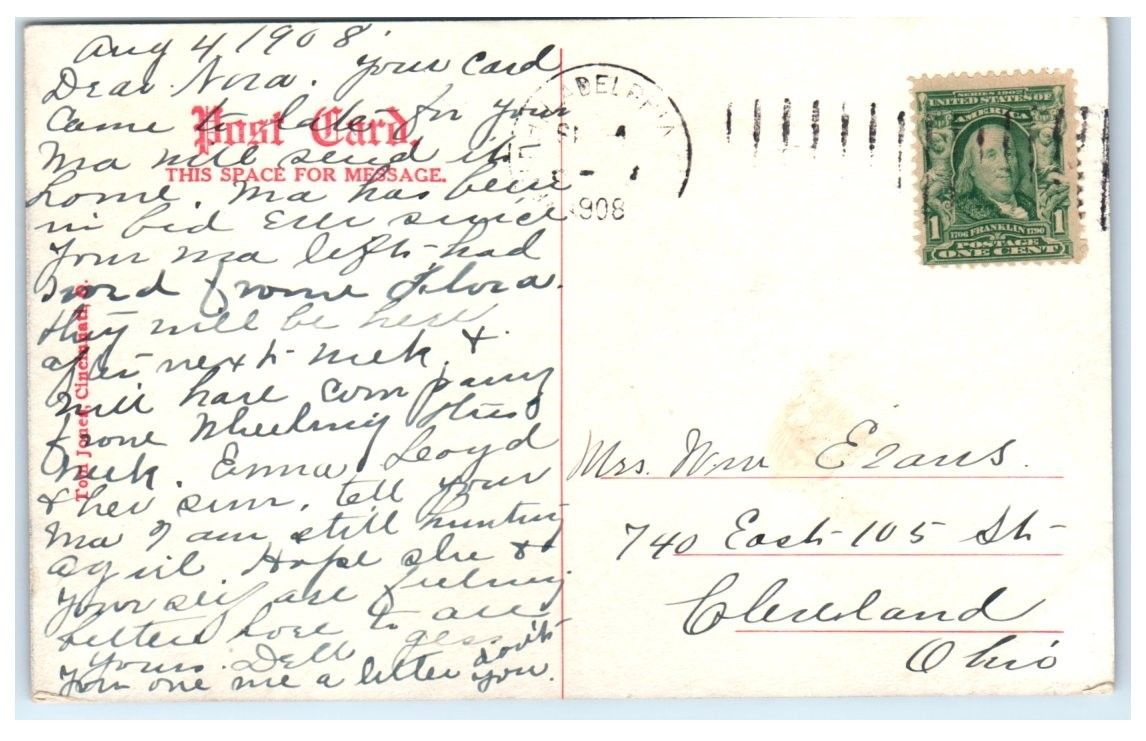 Aug 4, 1908.
Dear Nora. Your Card
Came to late for your
Post Card.
Ma will send it
THIS SPACE FOR MESSAGE.
home. Ma has been
in bed Ever since
Your Ma left had
word frome Flora.
they will be here
after next week, &
will have Company
frome Wheeling this
week. Emma Loyd
& her sun. tell your
Ma I am still hunting
a girl. Hope she &
Yourself are feeling
better love to all
Yours. Dell gess
You one me a letter dont
you.
Tom Jones, Cincinnati, O.
PHILADELPHIA
1908
SERIES 1902
UNITED STATES OF
AMERICA
1 1706 FRANKLIN 1790 1
POSTAGE
ONE CENT
Mrs. Wm Evans.
740 East 105 St
Cleveland
Ohio